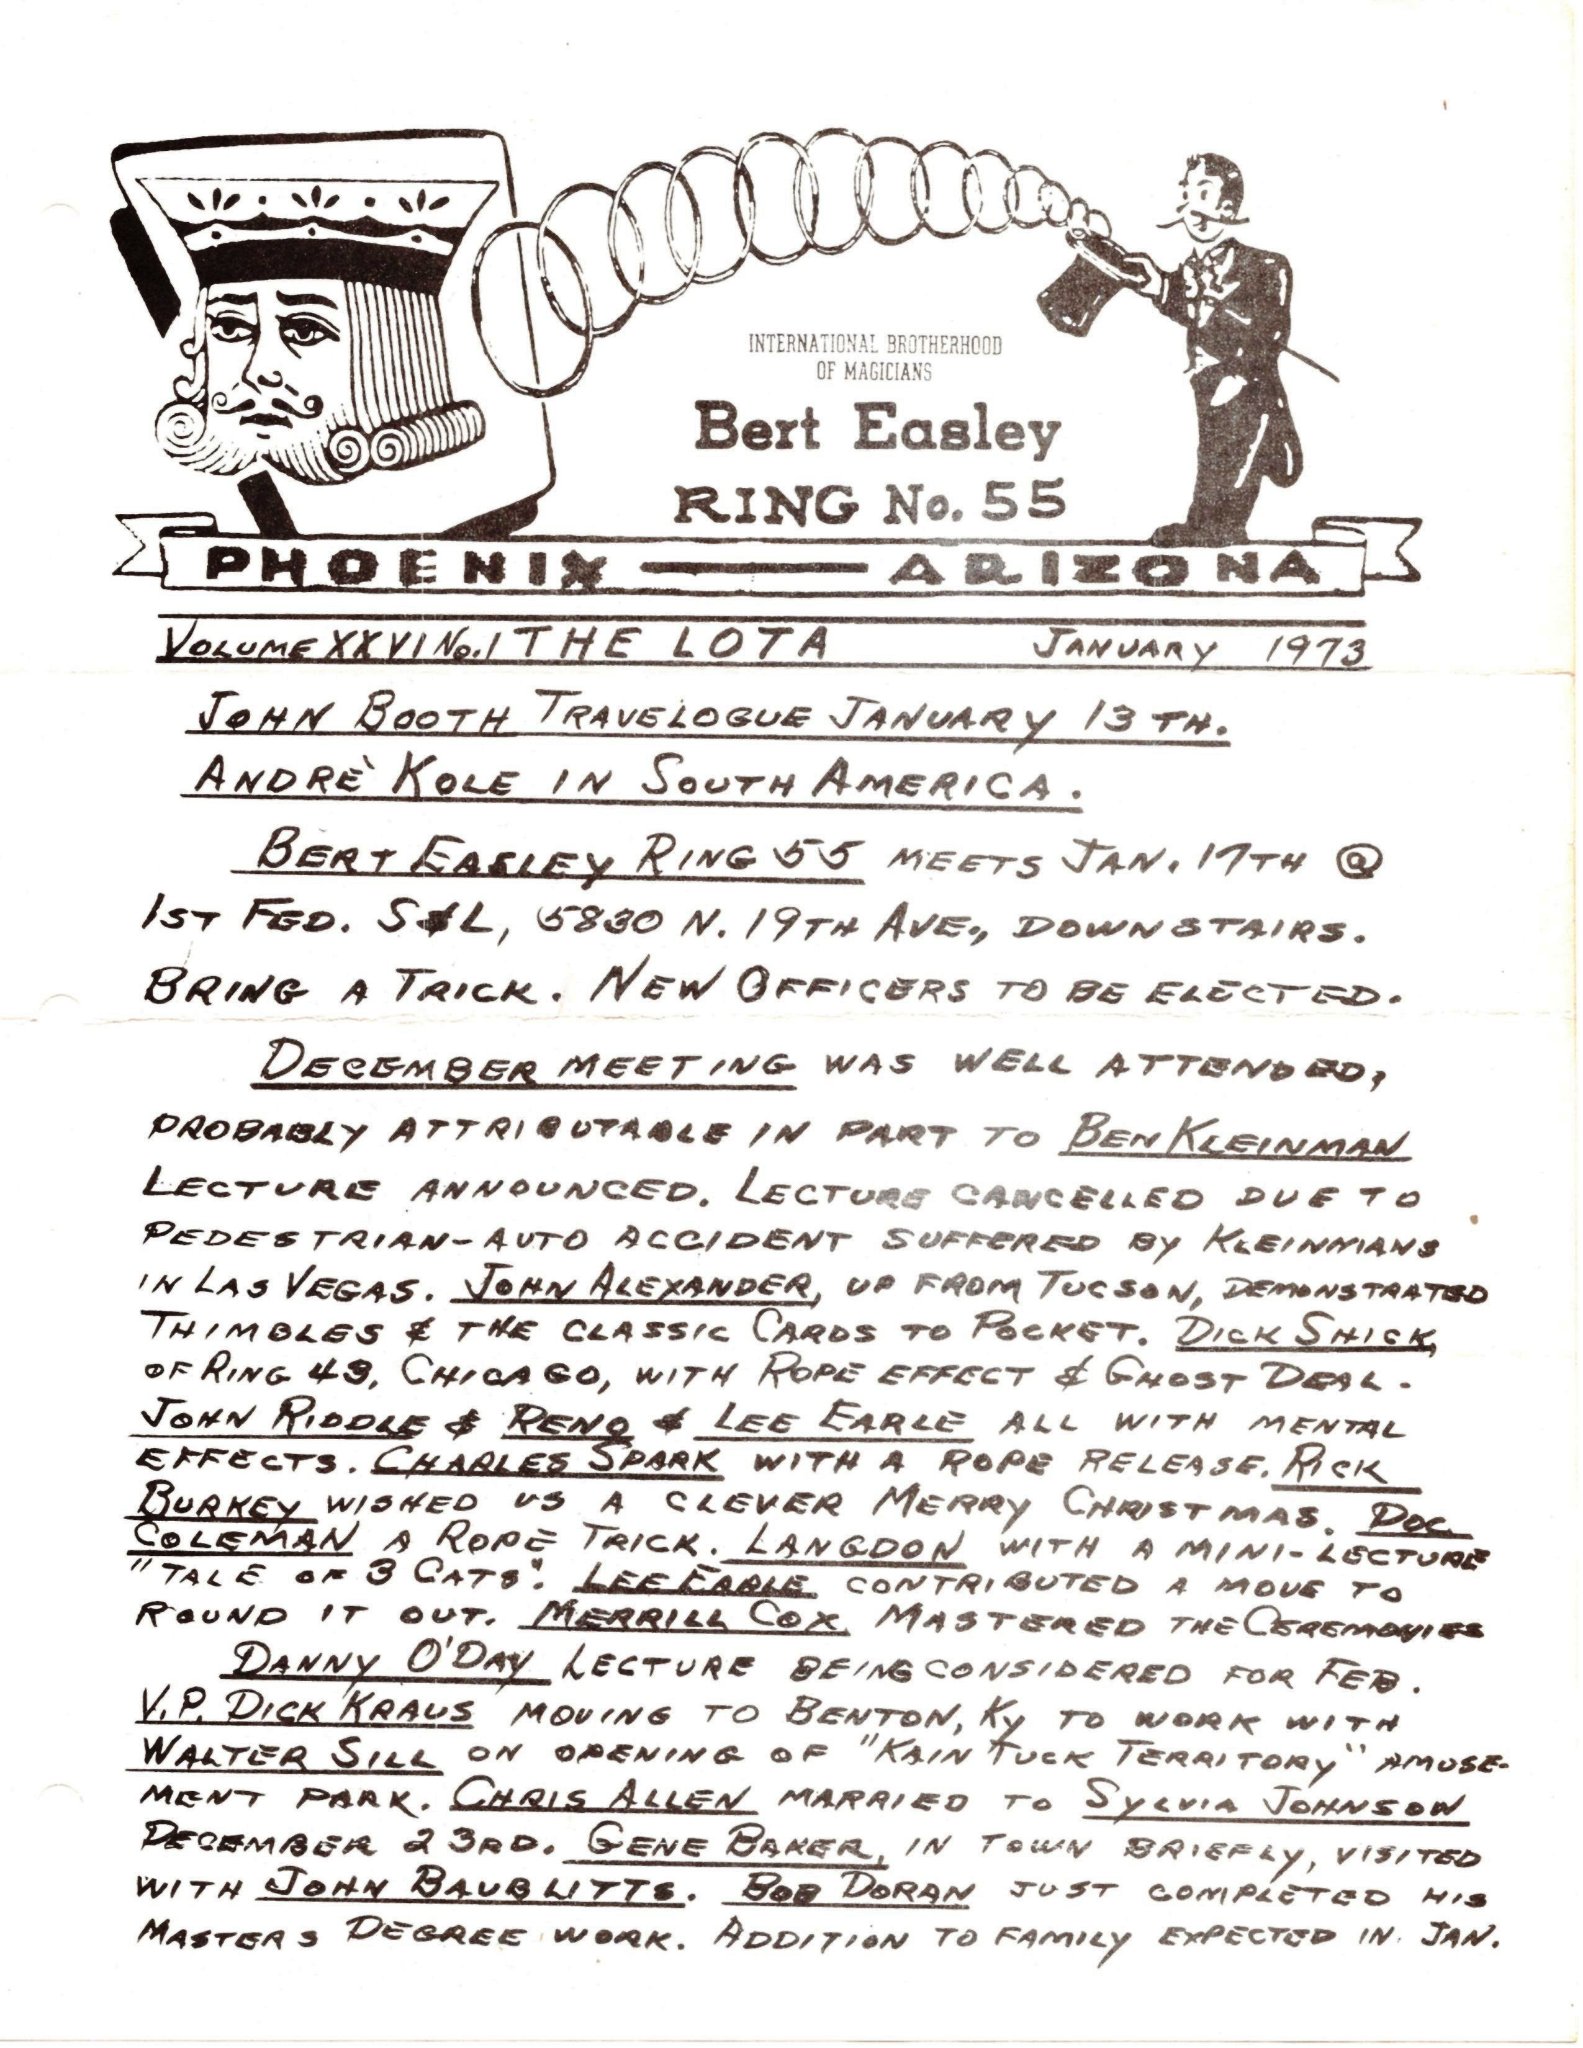 INTERNATIONAL BROTHERHOOD
OF MAGICIANS
Bert Easley
RING No. 55
PHOENIX — ARIZONA
VOLUME XXVI No. 1 THE LOTA JANUARY 1973
JOHN BOOTH TRAVELOGUE JANUARY 13TH.
ANDRÈ KOLE IN SOUTH AMERICA.
BERT EASLEY RING 55 MEETS JAN. 17TH @
1ST FED. S&L, 5830 N. 19TH AVE., DOWNSTAIRS.
BRING A TRICK. NEW OFFICERS TO BE ELECTED.
DECEMBER MEETING WAS WELL ATTENDED,
PROBABLY ATTRIBUTABLE IN PART TO BEN KLEINMAN
LECTURE ANNOUNCED. LECTURE CANCELLED DUE TO
PEDESTRIAN-AUTO ACCIDENT SUFFERED BY KLEINMANS
IN LAS VEGAS. JOHN ALEXANDER, UP FROM TUCSON, DEMONSTRATED
THIMBLES & THE CLASSIC CARDS TO POCKET. DICK SHICK,
OF RING 43, CHICAGO, WITH ROPE EFFECT & GHOST DEAL.
JOHN RIDDLE & RENO & LEE EARLE ALL WITH MENTAL
EFFECTS. CHARLES SPARK WITH A ROPE RELEASE. RICK
BURKEY WISHED US A CLEVER MERRY CHRISTMAS. DOC
COLEMAN A ROPE TRICK. LANGDON WITH A MINI-LECTURE
"TALE OF 3 CATS". LEE EARLE CONTRIBUTED A MOVE TO
ROUND IT OUT. MERRILL COX MASTERED THE CEREMONIES
DANNY O'DAY LECTURE BEING CONSIDERED FOR FEB.
V.P. DICK KRAUS MOVING TO BENTON, KY TO WORK WITH
WALTER SILL ON OPENING OF "KAIN TUCK TERRITORY" AMUSE-
MENT PARK. CHRIS ALLEN MARRIED TO SYLVIA JOHNSON
DECEMBER 23RD. GENE BAKER, IN TOWN BRIEFLY, VISITED
WITH JOHN BAUBLITTS. BOB DORAN JUST COMPLETED HIS
MASTERS DEGREE WORK. ADDITION TO FAMILY EXPECTED IN JAN.